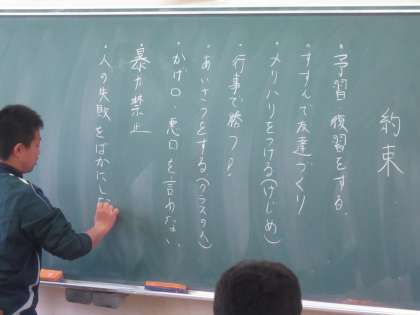 約束
・予習・復習をする。
・すすんで友達づくり
・メリハリをつける(けじめ)
・行事で勝つ!
・あいさつをする(クラスの人)
・かげ口・悪口を言わない
・暴力禁止
・人の失敗をばかにしな